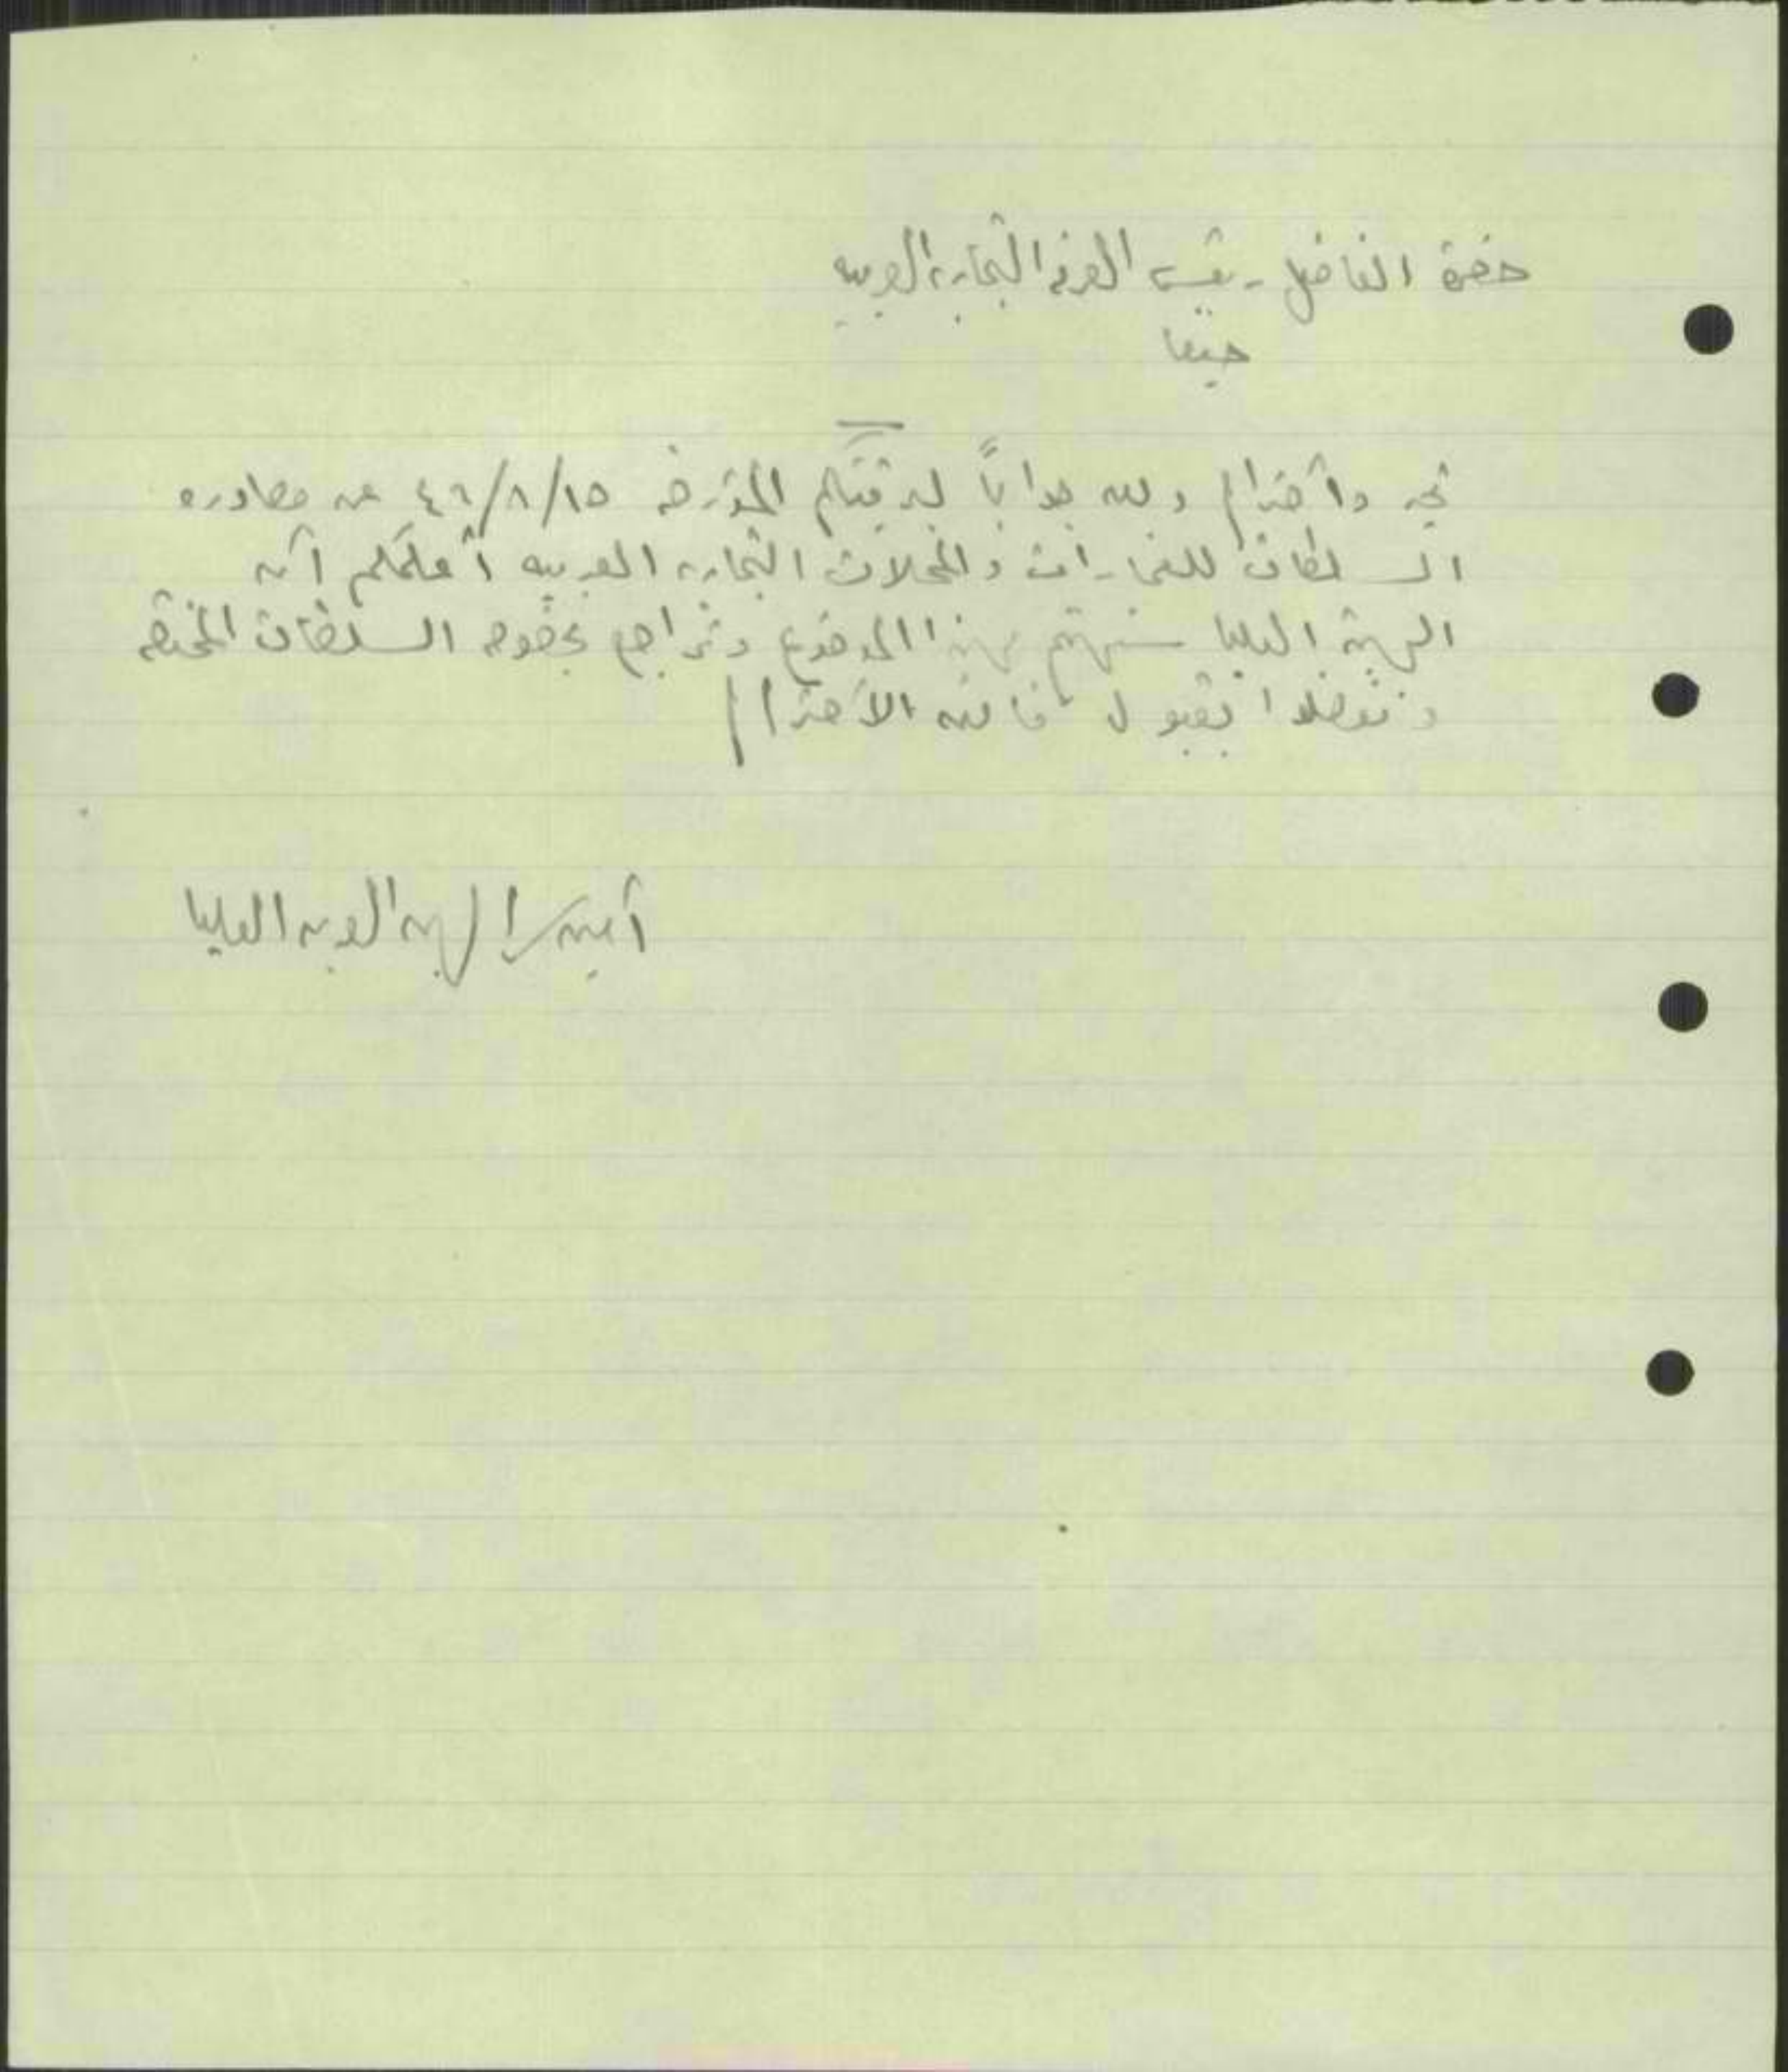 حضرة الفاضل رئيس الغرفة التجارية العربية
حيفا
تحية واحترام وبعد جواباً لبرقيتكم المؤرخة ٤٦/٨/١٥ عن مصادره
السلطات للعمارات والمحلات التجارية العربيه أعلمكم أن
الهيئة العليا ستهتم بهذا الموضوع وتراجع بخصوصه السلطات المختصه
وتفضلوا بقبول فائق الاحترام
أمين سر الهيئة العربية العليا